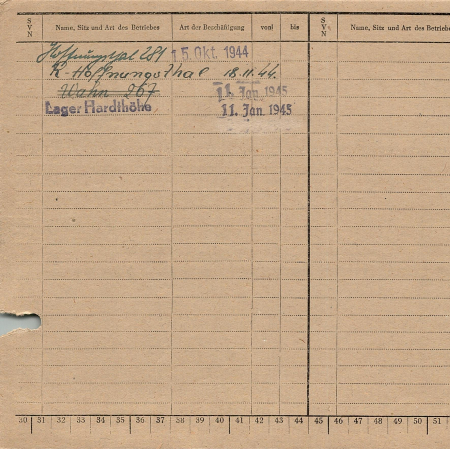 S Y N Name, Sitz und Art des Betriebes Art der Beschäftigung vonl bis S Y N Name, Sitz und Art des Betriebe
Hoffnungsthal 281 15. Okt. 1944
K-Hoffnungsthal 18.11.44.
Wahn 267 11. Jan. 1945
Lager Hardthöhe 11. Jan. 1945
30 31 32 33 34 35 36 37 38 39 40 41 42 43 44 45 46 47 48 49 50 51